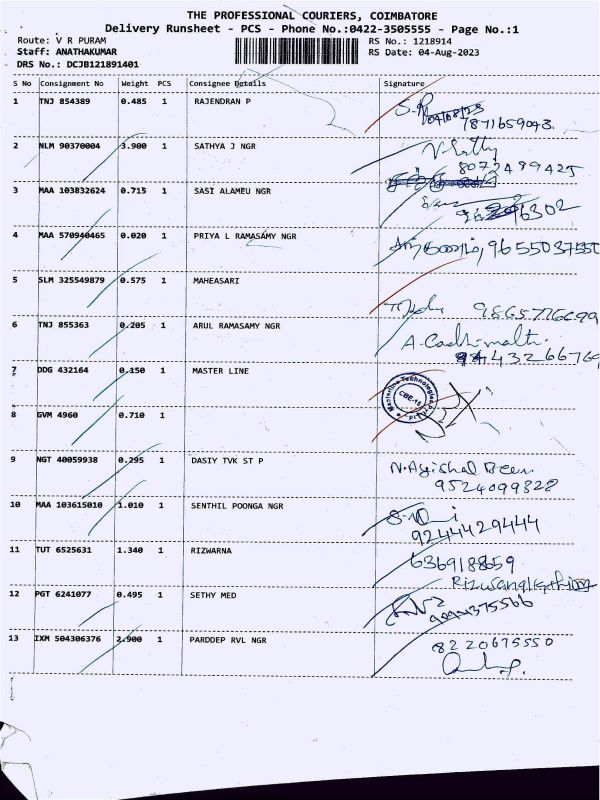 THE PROFESSIONAL COURIERS, COIMBATORE
Delivery Runsheet - PCS - Phone No.:0422-3505555 - Page No.:1
Route: V R PURAM
RS No.: 1218914
Staff: ANATHAKUMAR
RS Date: 04-Aug-2023
DRS No.: DCJB121891401
S No Consignment No Weight PCS Consignee Details Signature
1 TNJ 854389 0.485 1 RAJENDRAN P
04/08/23
7871659043.
2 NLM 90370004 3.900 1 SATHYA J NGR
8072499425
3 MAA 103832624 0.715 1 SASI ALAMEU NGR
6302
4 MAA 570940465 0.020 1 PRIYA L RAMASAMY NGR
9655037550
5 SLM 325549879 0.575 1 MAHEASARI
9865776699
6 TNJ 855363 0.205 1 ARUL RAMASAMY NGR
A.
9443266769
7 DDG 432164 0.150 1 MASTER LINE
Masterline Technologies
CBE-18
8 GVM 4960 0.710 1
9 NGT 40059938 0.295 1 DASIY TVK ST P
9524099328
10 MAA 103615010 1.010 1 SENTHIL POONGA NGR
9244429444
11 TUT 6525631 1.340 1 RIZWARNA
6369188659
12 PGT 6241077 0.495 1 SETHY MED
13 IXM 504306376 2.900 1 PARDDEP RVL NGR
8220675550